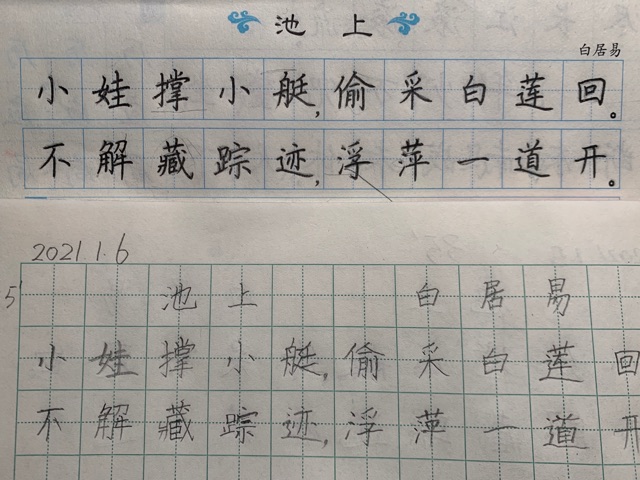 池上
白居易
小娃撑小艇,偷采白莲回。
不解藏踪迹,浮萍一道开。
2021.1.6
5'
池上 白居易
小娃撑小艇,偷采白莲回
不解藏踪迹,浮萍一道开